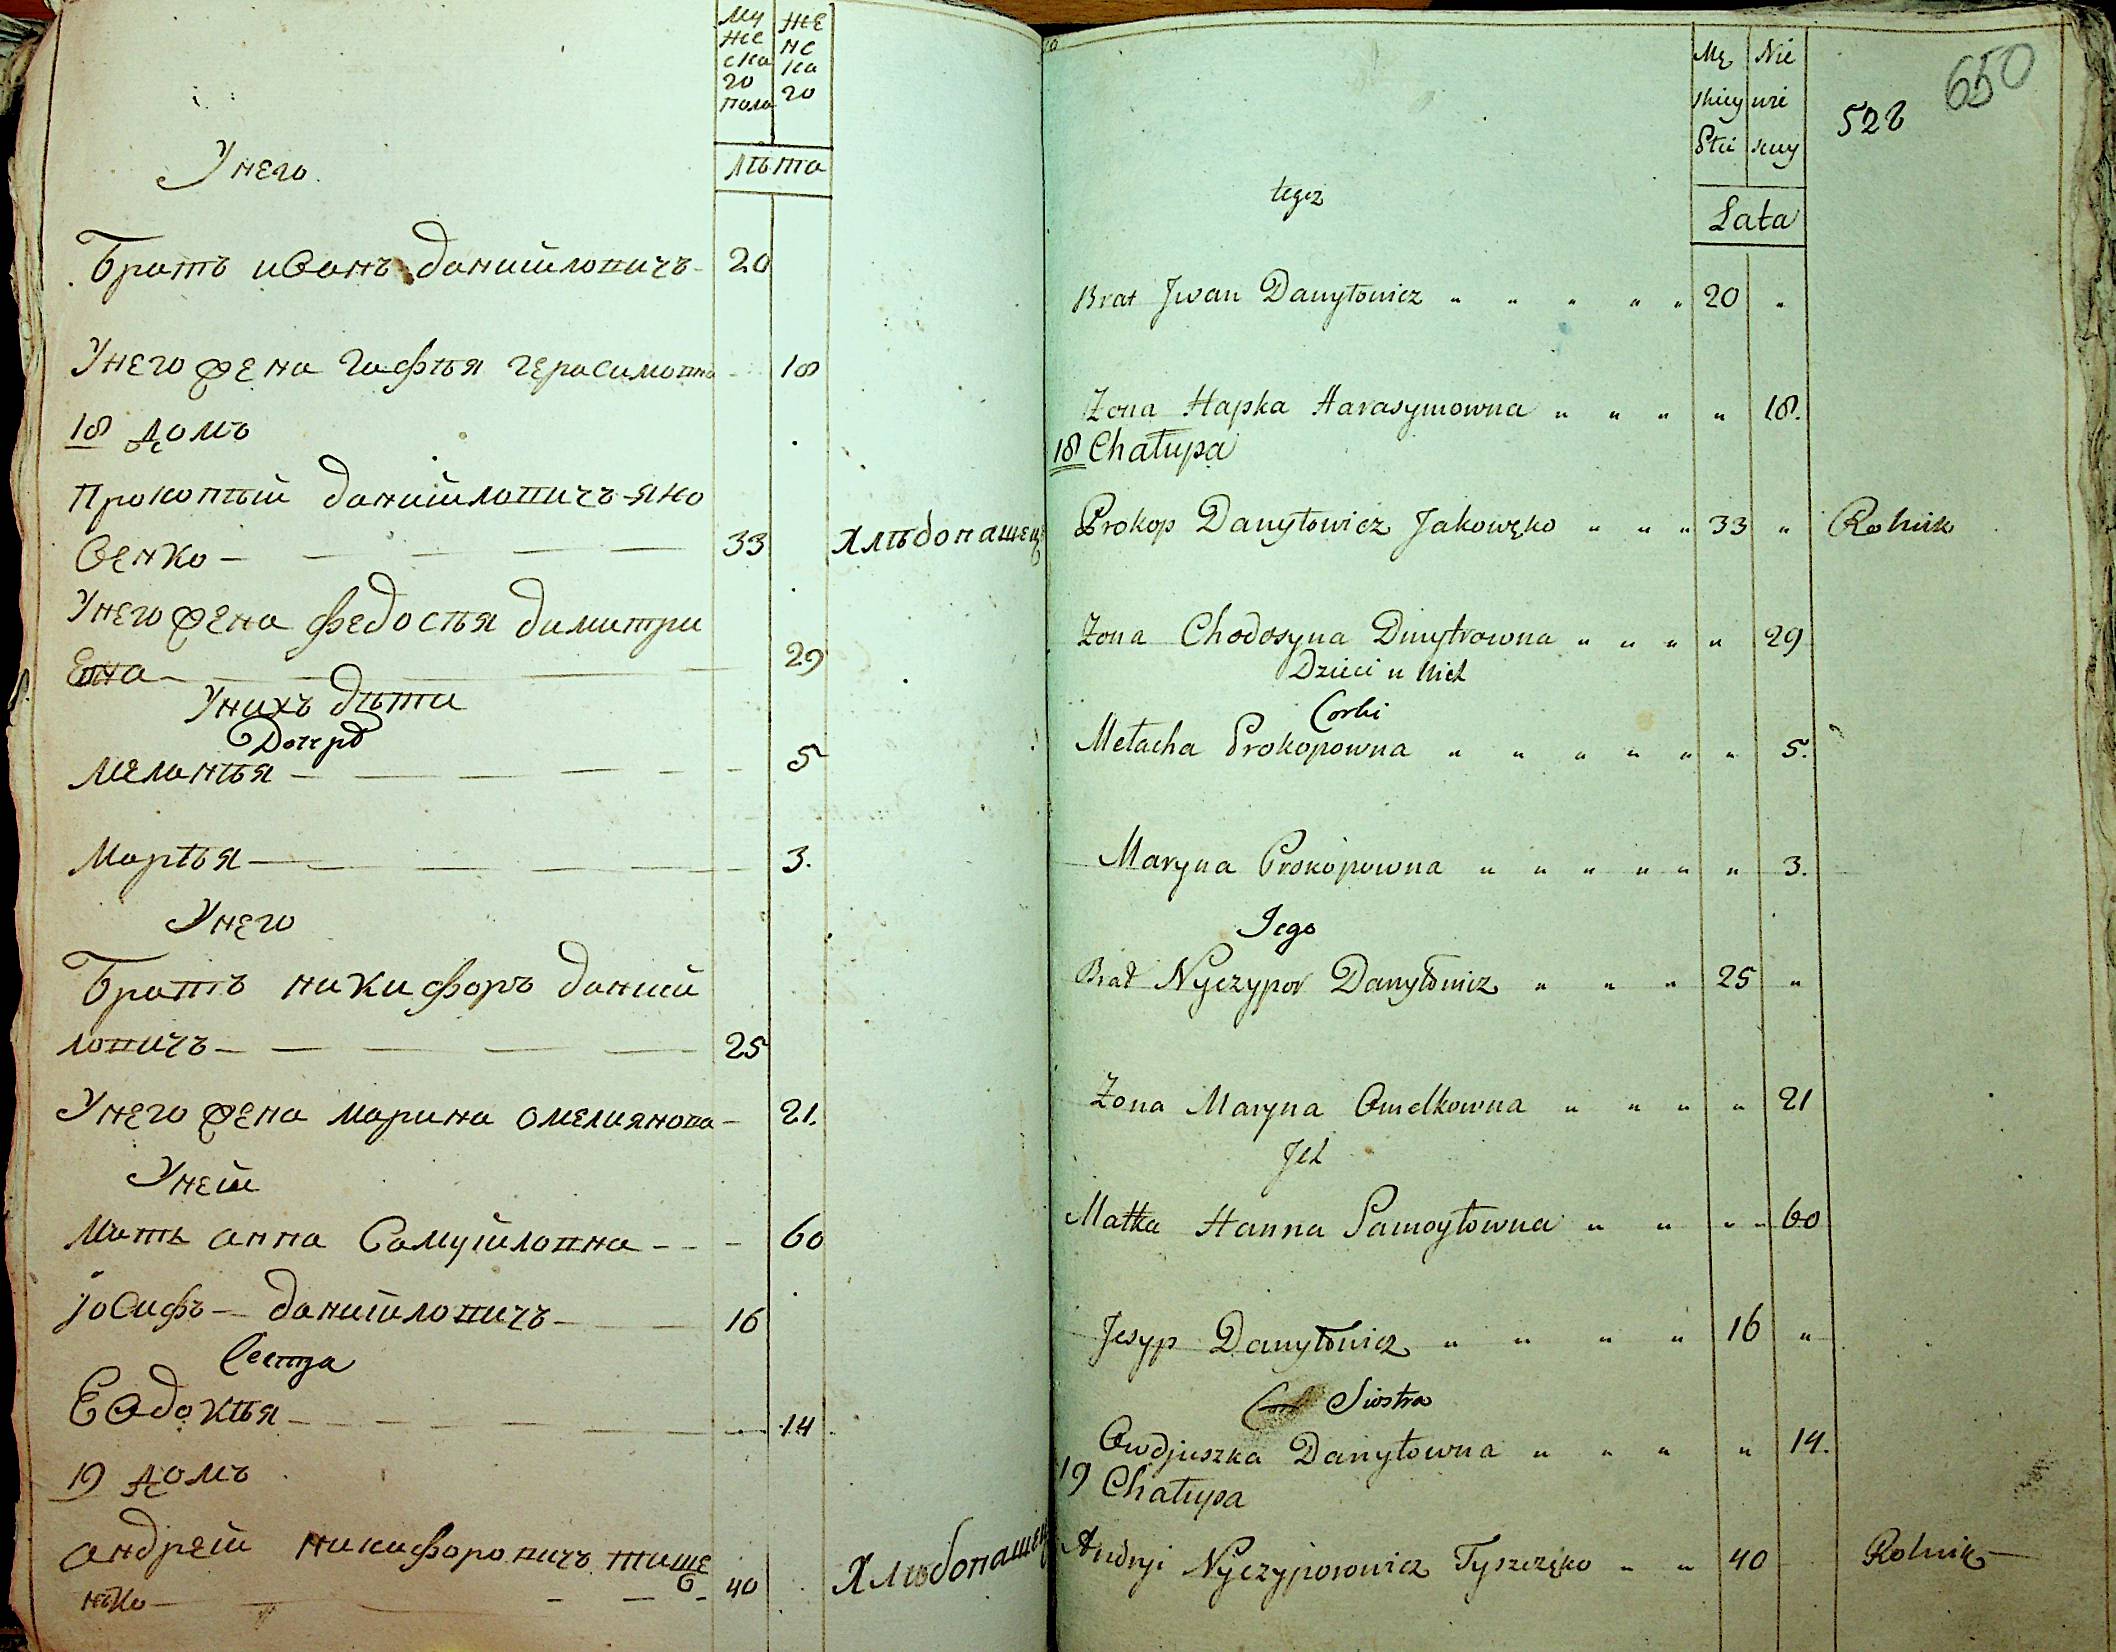 Му
же
ска
го
пола
же
нс
ка
го
Лѣта
У него
Братъ иванъ данииловичъ 20
У него жена гафѣя герасимовна 18
18 домъ
Прокопѣй данииловичъ яко
венко 33 Хлѣбопашец
У него жена федосѣя димитри
евна 29
У нихъ дѣти
Дочерѣ
меланѣя 5
Марѣя 3.
У него
Братъ никифоръ дании
ловичъ 25
У него жена марина омелиянова 21.
У ней
Мать анна Самуйловна 60
іосифъ данииловичъ 16
Сестра
Евдокѣя 14
19 домъ
андрей никифоровичъ тише
нько 40 Хлѣбопашец
Mę
skiey
Płci
Nie
wie
sciey
Lata
528
650
tegoż
Brat Jwan Danyłowicz " " " " " 20 "
Zona Hapka Harasymowna " " " " 18.
18 Chałupa
Prokop Danyłowicz Jakowęko " " " 33 " Rolnik
Zona Chodosyna Dmytrowna " " " " 29
Dzieci u Nich
Corki
Mełacha Prokopowna " " " " " " 5.
Maryna Prokopowna " " " " " " 3.
Jego
Brat Nyczypor Danyłowicz " " " 25 "
Zona Maryna Omelkowna " " " " 21
Jch
Matka Hanna Samoyłowna " " " " 60
Jesyp Danyłowicz " " " " 16 "
Siostra
Owdjuszka Danyłowna " " " " 14.
19 Chałupa
Andryi Nyczyporowicz Tyszczęko " " 40 Rolnik